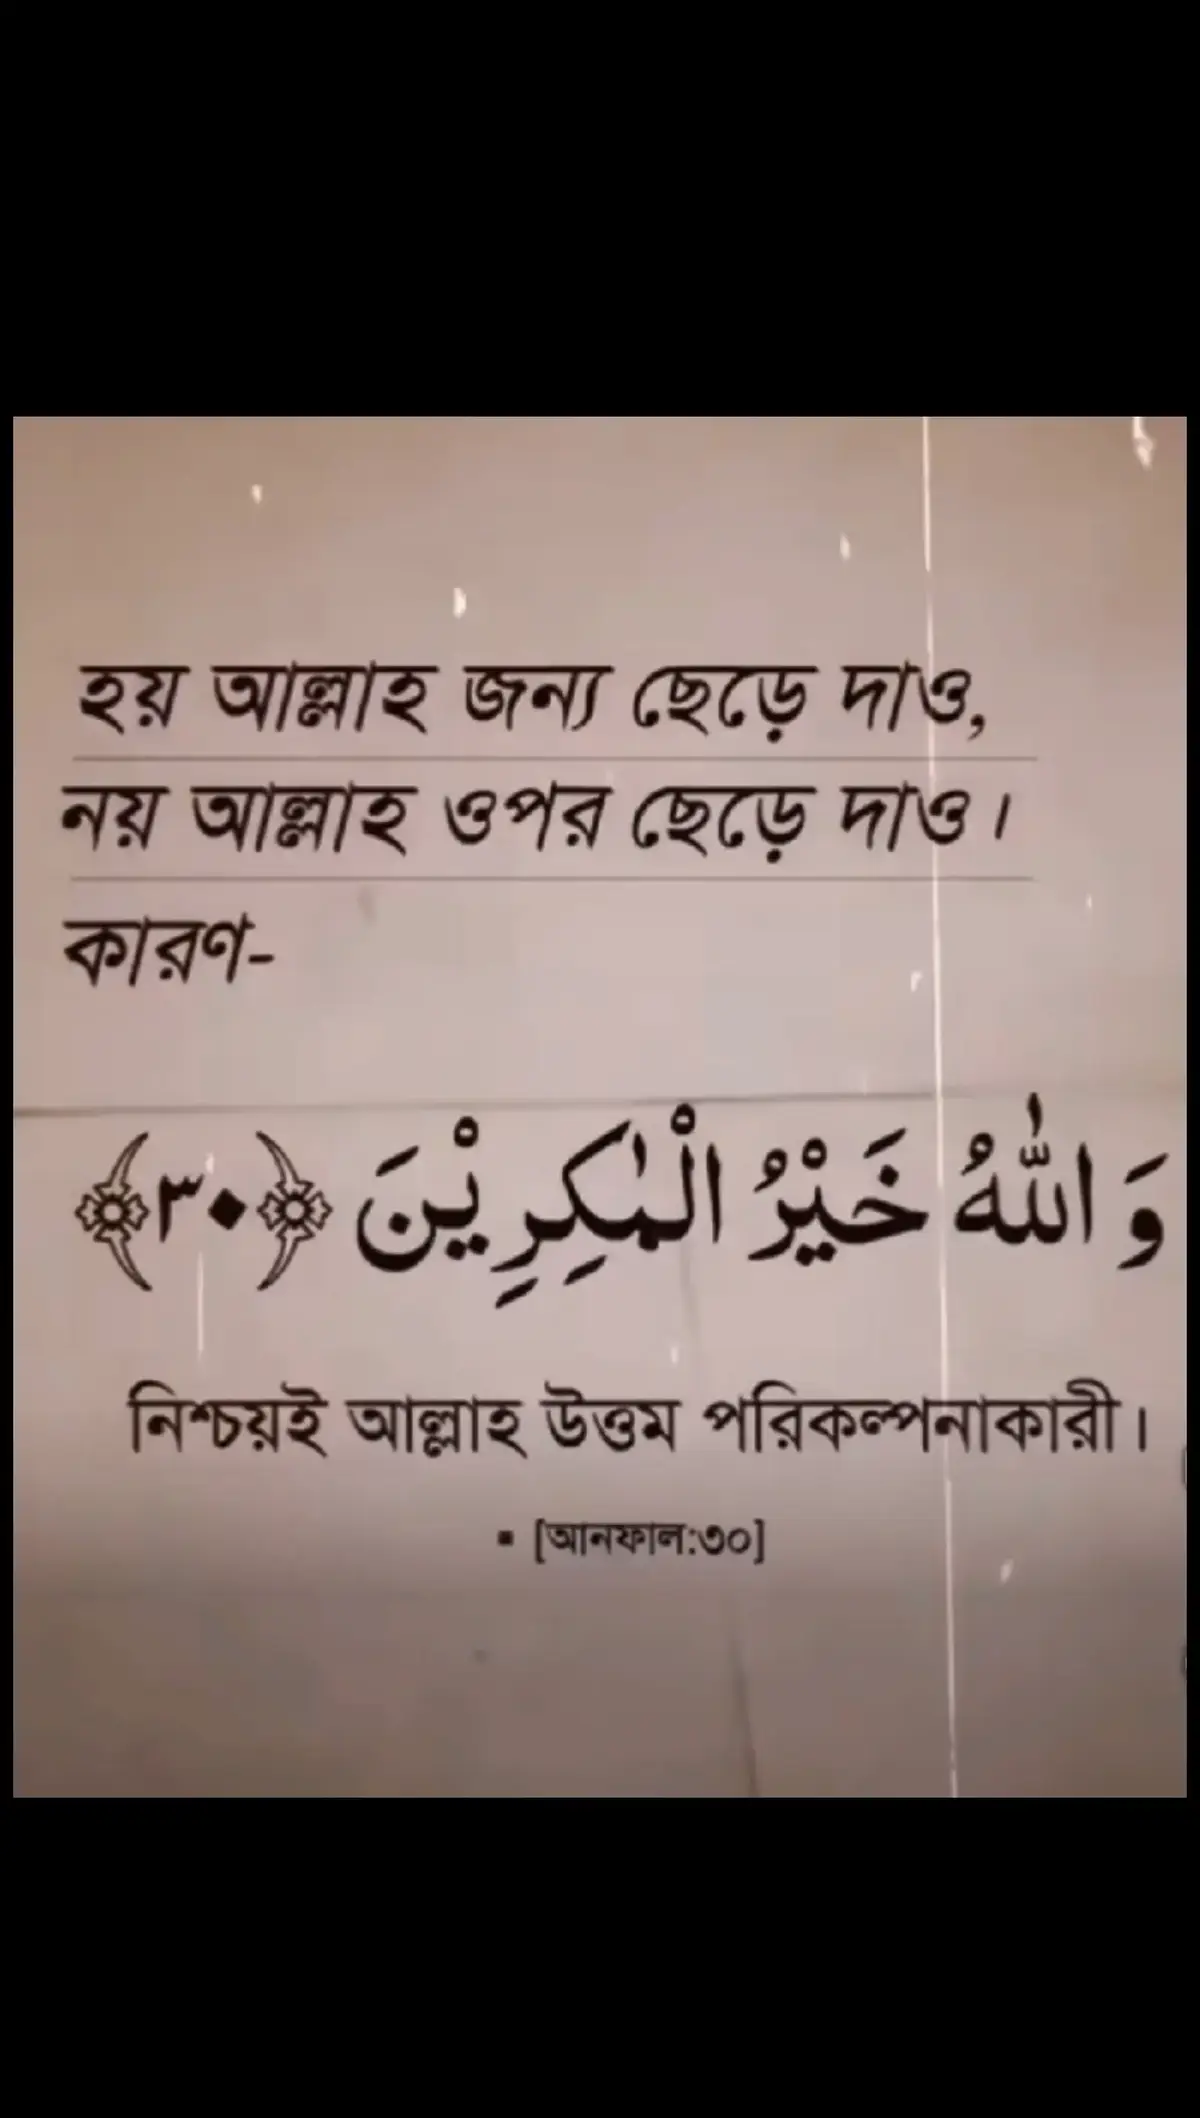 হয় আল্লাহ জন্য ছেড়ে দাও,
নয় আল্লাহ ওপর ছেড়ে দাও।
কারণ-
وَ اللّٰهُ خَیْرُ الْمٰكِرِیْنَ ﴿۳۰﴾
নিশ্চয়ই আল্লাহ উত্তম পরিকল্পনাকারী।
▪ [আনফাল:৩০]